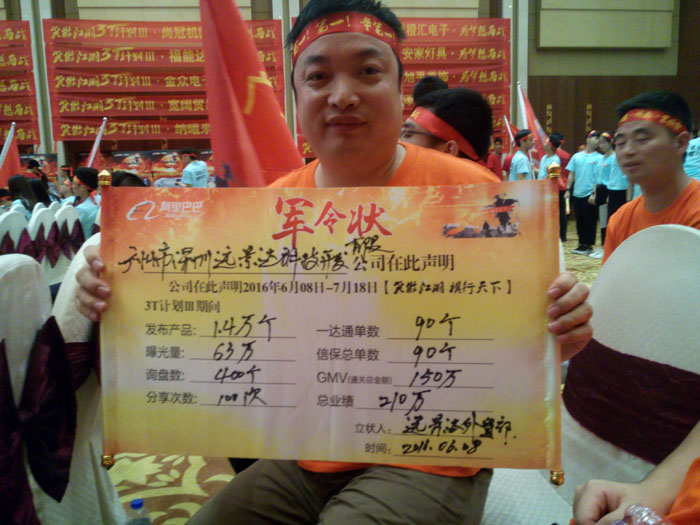 笑傲江湖3T计划Ⅲ·尚冠机
笑傲江湖3T计划Ⅲ·福能达
笑傲江湖3T计划Ⅲ·金众电
笑傲江湖3T计划Ⅲ·宽阔贸
笑傲江湖3T计划Ⅲ·纳唯
橙汇电子·为梦想而战
安家灯具·为梦想而战
为梦想而战
第一！
阿里巴巴
军令状
远景达科技开发有限公司在此声明
公司在此声明2016年6月08日-7月18日【笑傲江湖 横行天下】
3T计划Ⅲ期间
发布产品：1.4万个
一达通单数 90个
曝光量：63万
信保总单数 90个
询盘数：400个
GMV(通关总金额) 150万
分享次数：100次
总业绩 210万
立状人：远景达外贸部
时间：2016.06.08